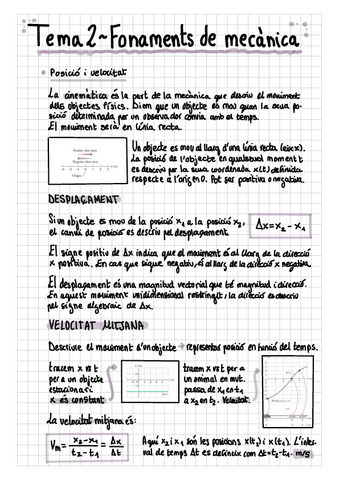 Tema 2 ~ Fonaments de mecànica
Posició i velocitat
La cinemàtica és la part de la mecànica que descriu el moviment
dels objectes físics. Diem que un objecte es mou quan la seua po-
sició determinada per un observador canvia amb el temps.
El moviment serà en línia recta.
Un objecte es mou al llarg d'una línia recta (eix x).
La posició de l'objecte en qualsevol moment t
es descriu per la seua coordenada x(t) definida
respecte a l'origen O. Pot ser positiva o negativa.
DESPLAÇAMENT
Si un objecte es mou de la posició x₁ a la posició x₂,
el canvi de posició es descriu pel desplaçament
Δx = x₂ - x₁
El signe positiu de Δx indica que el moviment és al llarg de la direcció
x positiva. En cas que sigue negatiu, és al llarg de la direcció x negativa.
El desplaçament és una magnitud vectorial que té magnitud i direcció.
En aquest moviment unidimensional restringit, la direcció es descriu
pel signe algebraic de Δx.
VELOCITAT MITJANA
Descriure el moviment d'un objecte → representar posició en funció del temps.
tracem x vs t
per a un objecte
estacionari
x és constant
tracem x vs t per a
un animal en mvt.
passa de x₁ en t₁
a x₂ en t₂. Velocitat.
La velocitat mitjana és:
Vm = x₂ - x₁ / t₂ - t₁ = Δx / Δt
Aquí x₂ i x₁ són les posicions x(t₂) i x(t₁). L'inter-
val de temps Δt es defineix com Δt = t₂ - t₁. m/s